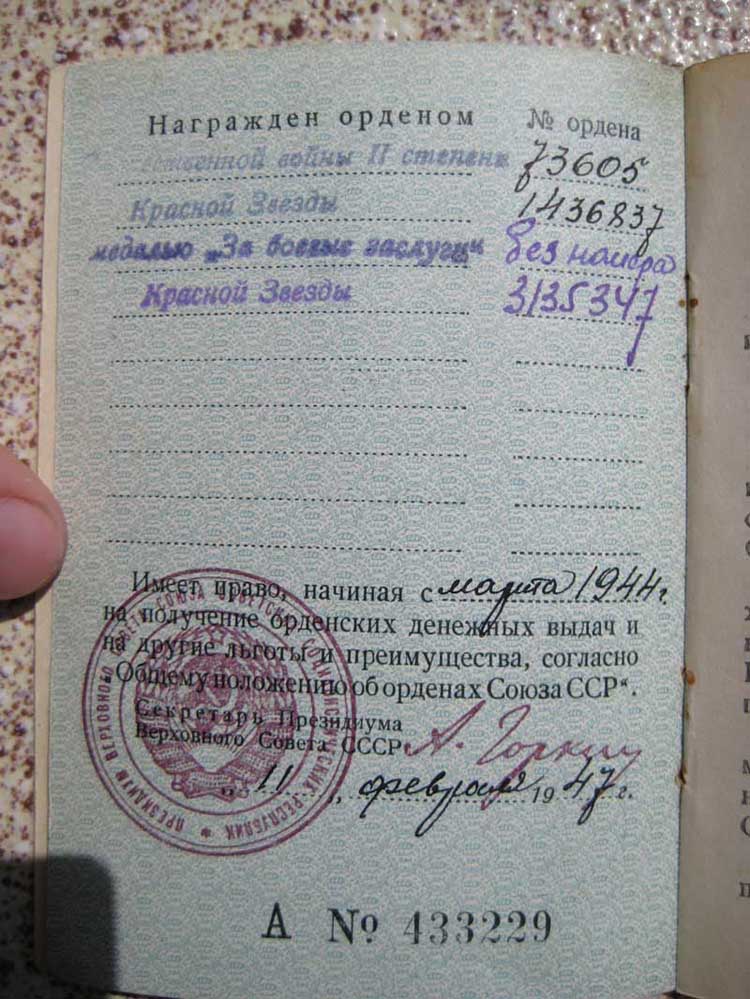 Награжден орденом № ордена
войны II степени 73605
Красной Звезды 1436837
медалью „За боевые заслуги“ без номера
Красной Звезды 3135347
Имеет право, начиная с марта 1944 г.
на получение орденских денежных выдач и
на другие льготы и преимущества, согласно
„Общему положению об орденах Союза ССР“.
Секретарь Президиума
Верховного Совета СССР А. Горкин
„ 11 „ февраля 1947 г.
А № 433229
ПРЕЗИДИУМ ВЕРХОВНОГО СОВЕТА СОЮЗА СОВЕТСКИХ СОЦИАЛИСТИЧЕСКИХ РЕСПУБЛИК